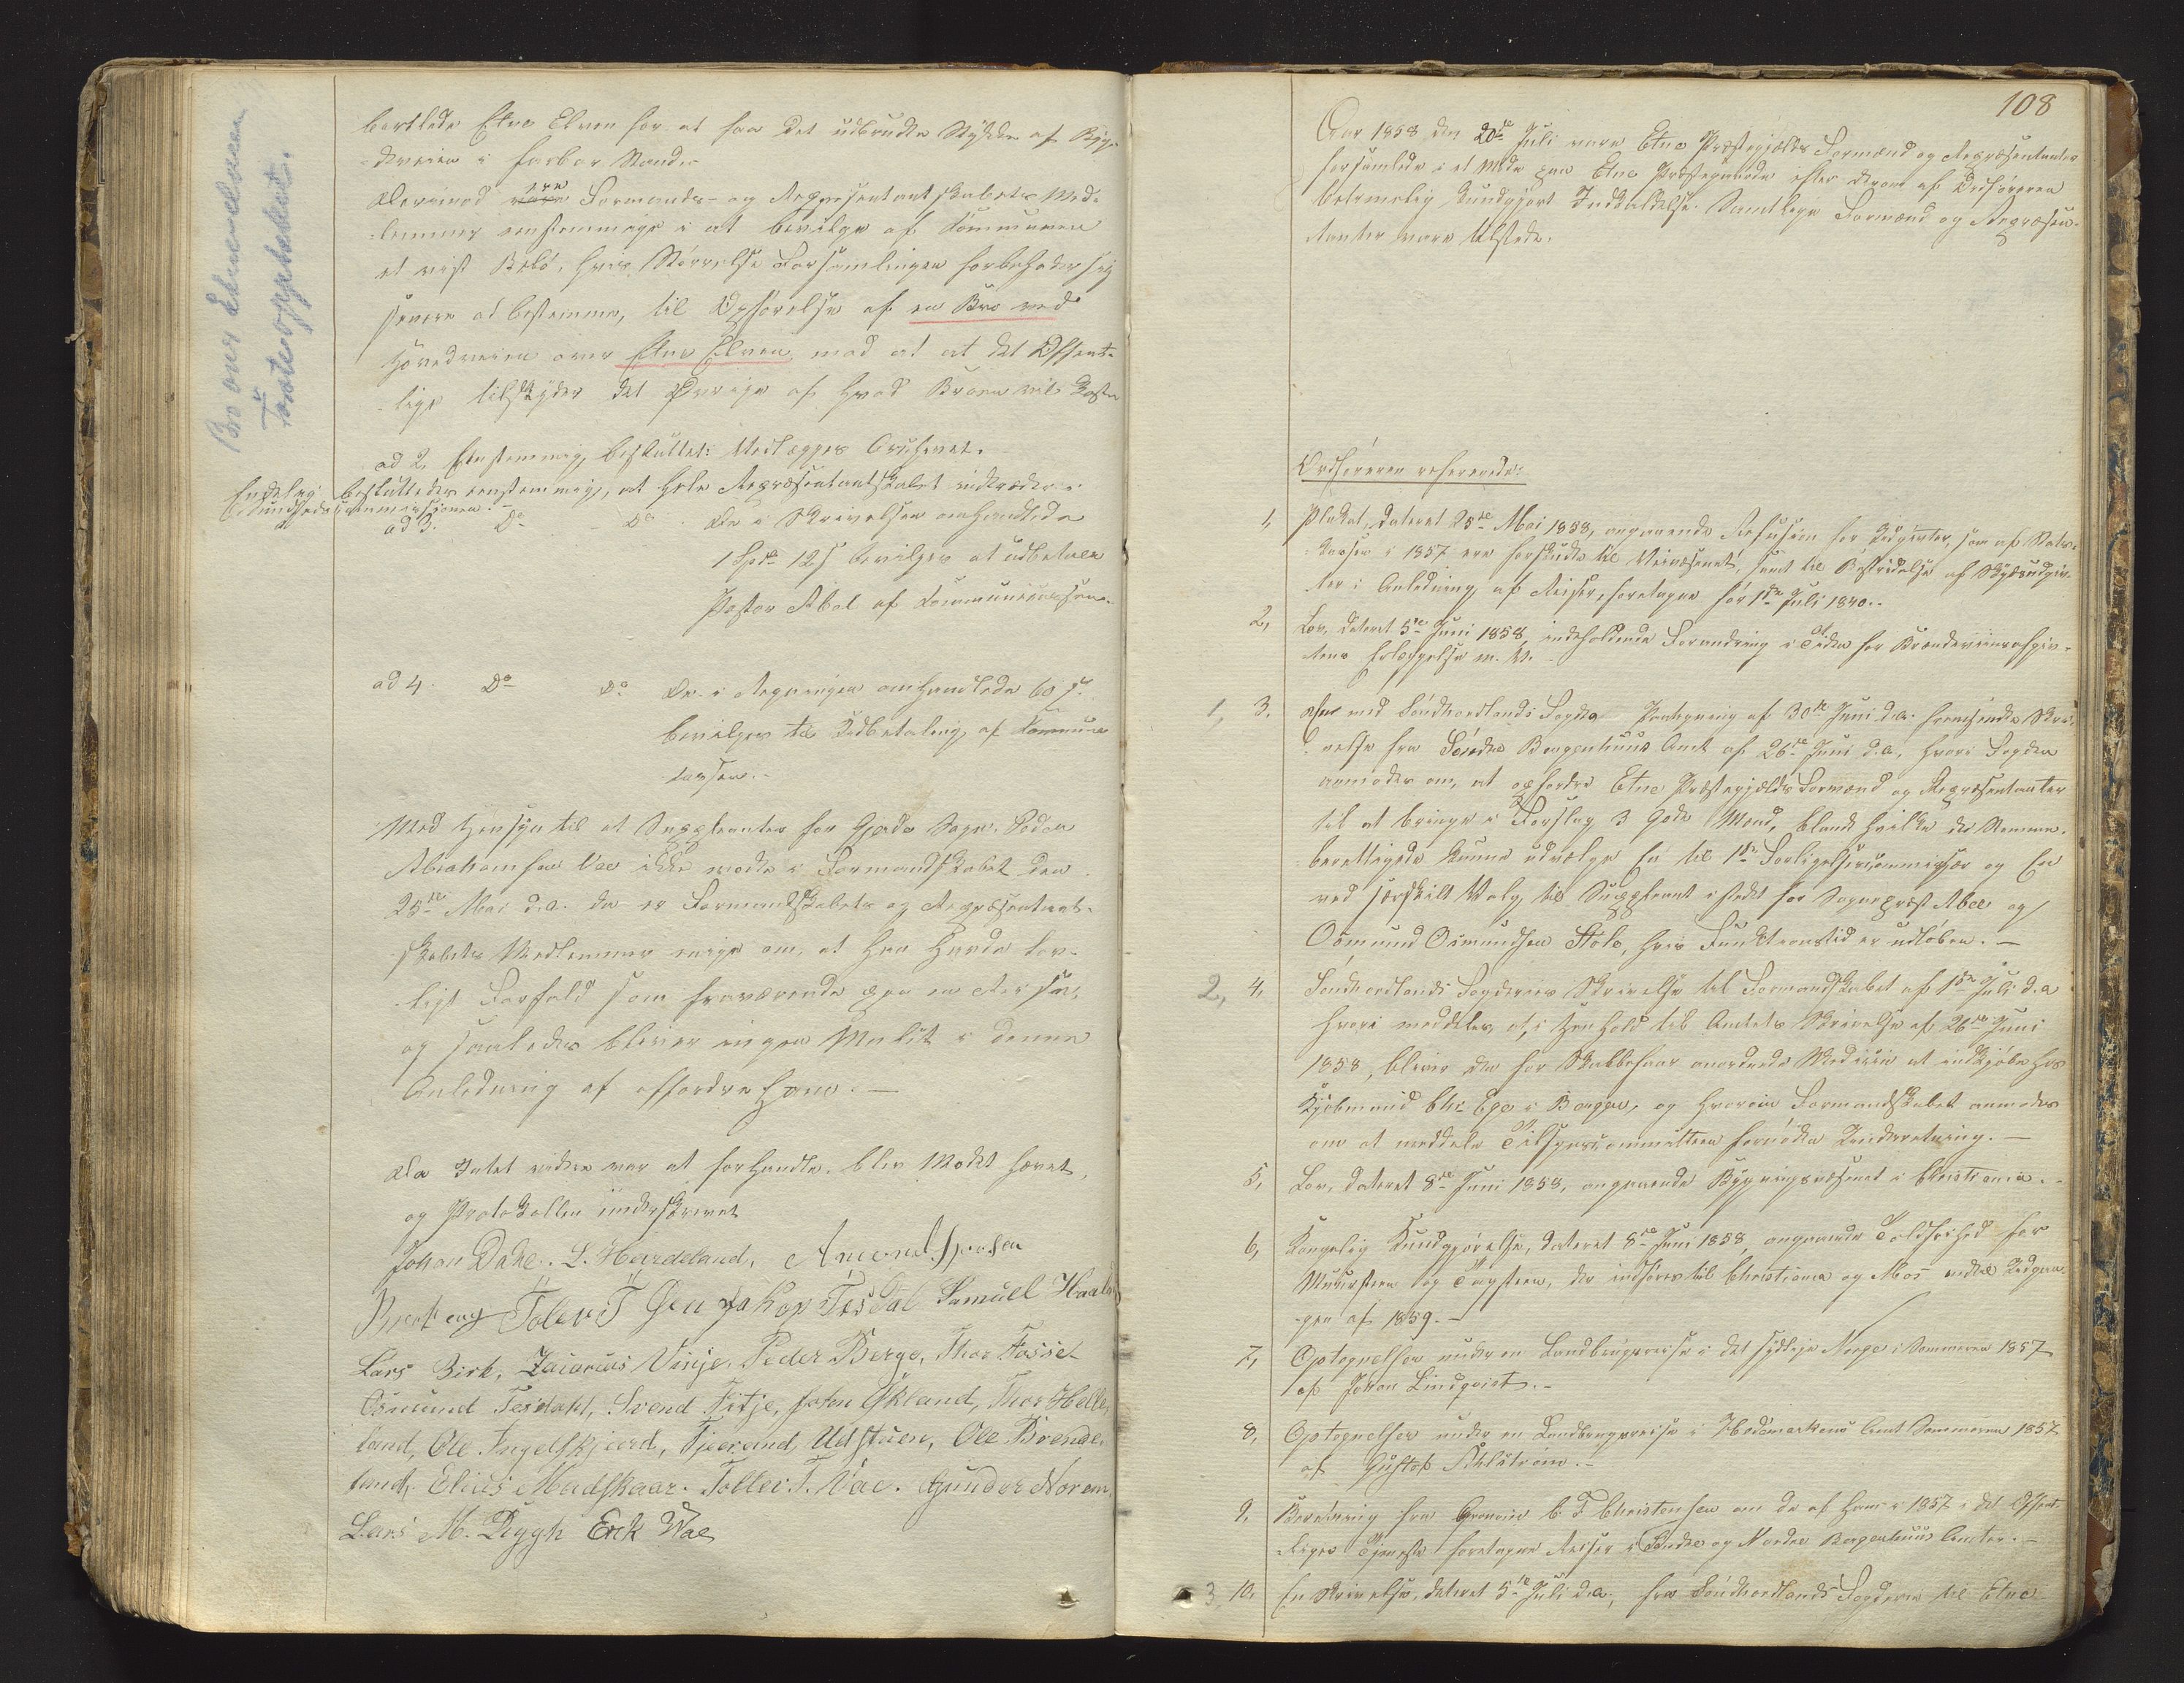 Bro over Etne-elven
Første opphøkert.
bortlede Etne Elven for at faa det udbrudte Stykke af Byg-
deveien i farbar Stand.
Derimod ere Formands- og Repræsentantskabets Med-
lemmer eenstemmige i at bevilge af Kommunen
et vist Beløb, hvis Størrelse Forsamlingen forbeholder sig
senere at bestemme, til Opførelse af en Bro ved
Hovedveien over Etne Elven mod at at det Offent-
lige tilskyder det Øvrige af hvad Broen vil koste
ad 2. Eenstemmig besluttet: Vedlægges Archivet.
Endelig besluttedes eenstemmig, at hele Repræsentantskabet indtræder i
Sundhedscommissionen.
ad 3. Do Do De i Skrivelsen omhandlede
1 Spd 12 s bevilges at udbetales
Pastor Abel af Kommunecassen.
ad 4. Do Do De i Regningen omhandlede 60 s
bevilges til Udbetaling af Kommune
cassen.
Med Hensyn til at Suppleanten for Gjerde Sogn, Peder
Abrahamsen Vae ikke mødte i Formandskabet den
25de Mai d.a. da er Formandskabets og Repræsentant-
skabets Medlemmer enige om, at han havde lov-
ligt Forfald som fraværende paa en Reise,
og saaledes bliver ingen Mulkt i denne
Anledning at affordre ham. —
Da Intet videre var at forhandle, blev Mødet hævet,
og Protokollen underskrevet
Johan Dahe. L. Hardeland, Amund
Tolev T Jakop Tesdal Samuel
Lars Birk, Zacarias Vinje, Peder Berge, Thor Fosse
Osmund Tesdahl, Svend Fitje, John Økland, Thor Helle-
land, Ole Ingelskjærd, Tjærand Udstuen, Ole Brende-
land, Elias Madskaar. Tollev T. Vae. Gunder Norem,
Lars M. Diggh Erik Wae
108
Aar 1858 den 20de Juli vare Etne Præstegjælds Formænd og Repræsentanter
forsamlede i et Møde paa Etne Præstegaard efter derom af Ordføreren
betimelig kundgjort Indkaldelse. Samtlige Formænd og Repræsen-
tanter vare tilstede.
Ordføreren refererede:
1, Plakat, dateret 25de Mai 1858, angaaende Refusion for Udgivter, som af Stats-
kassen i 1857 ere forskudte til Veivæsenet, samt til Bestridelse af Skydsudgiv-
ter i Anledning af Reiser, foretagne før 1ste Juli 1840.
2, Lov, dateret 5te Juni 1858, indeholdende Forandring i Tiden for Brændeviinsafgiv-
tens Erlæggelse m. V.
1, 3. En med Søndhordlands Fogdes Paategning af 30te Juni d.a. fremsendte Skri-
velse fra Søndre Bergenhuus Amt af 26de Juni d.a., hvori Fogden
anmodes om, at opfordre Etne Præstegjælds Formænd og Repræsentanter
til at bringe i Forslag 3 gode Mænd, blandt hvilke de Stemme-
berettigede kunne udvælge En til 1ste Forligelsescommissær og En
ved særskilt Valg til Suppleant istedet for Sognepræst Abel og
Osmund Osmundsen Støle, hvis Funktionstid er udløben. —
2, 4, Søndhordlands Fogderies Skrivelse til Formandskabet af 1ste Juli d.a
hvori meddeles, at, i Henhold til Amtets Skrivelse af 26de Juni
1858, bliver den for Skabbefaar anordnede Medicin at indkjøbe hos
Kjøbmand Chr. Ege i Bergen, og hvorom Formandskabet anmodes
om at meddele Tilsynscommitteen fornøden Underretning. —
5, Lov, dateret 8de Juni 1858, angaaende Bygningsvæsenet i Christiania.
6, Kongelig Kundgjørelse, dateret 8de Juni 1858, angaaende Toldfrihed for
Muursteen og Tagsteen, der indføres til Christiania og Mos indtil Udgan-
gen af 1859. —
7, Optegnelser under en Landbrugsreise i det sydlige Norge i Sommeren 1857
af Johan Lindqvist. —
8, Optegnelser under en Landbrugsreise i Hedemarkens Amt Sommeren 1857
af Gustaf
9, Beretning fra Agronom C. T. Christensen om de af ham i 1857 i det Offent-
liges Tjeneste foretagne Reiser i Søndre og Nordre Bergenhuus Amter. —
3, 10, En Skrivelse, dateret 5te Juli d.a., fra Søndhordlands Fogderie til Etne